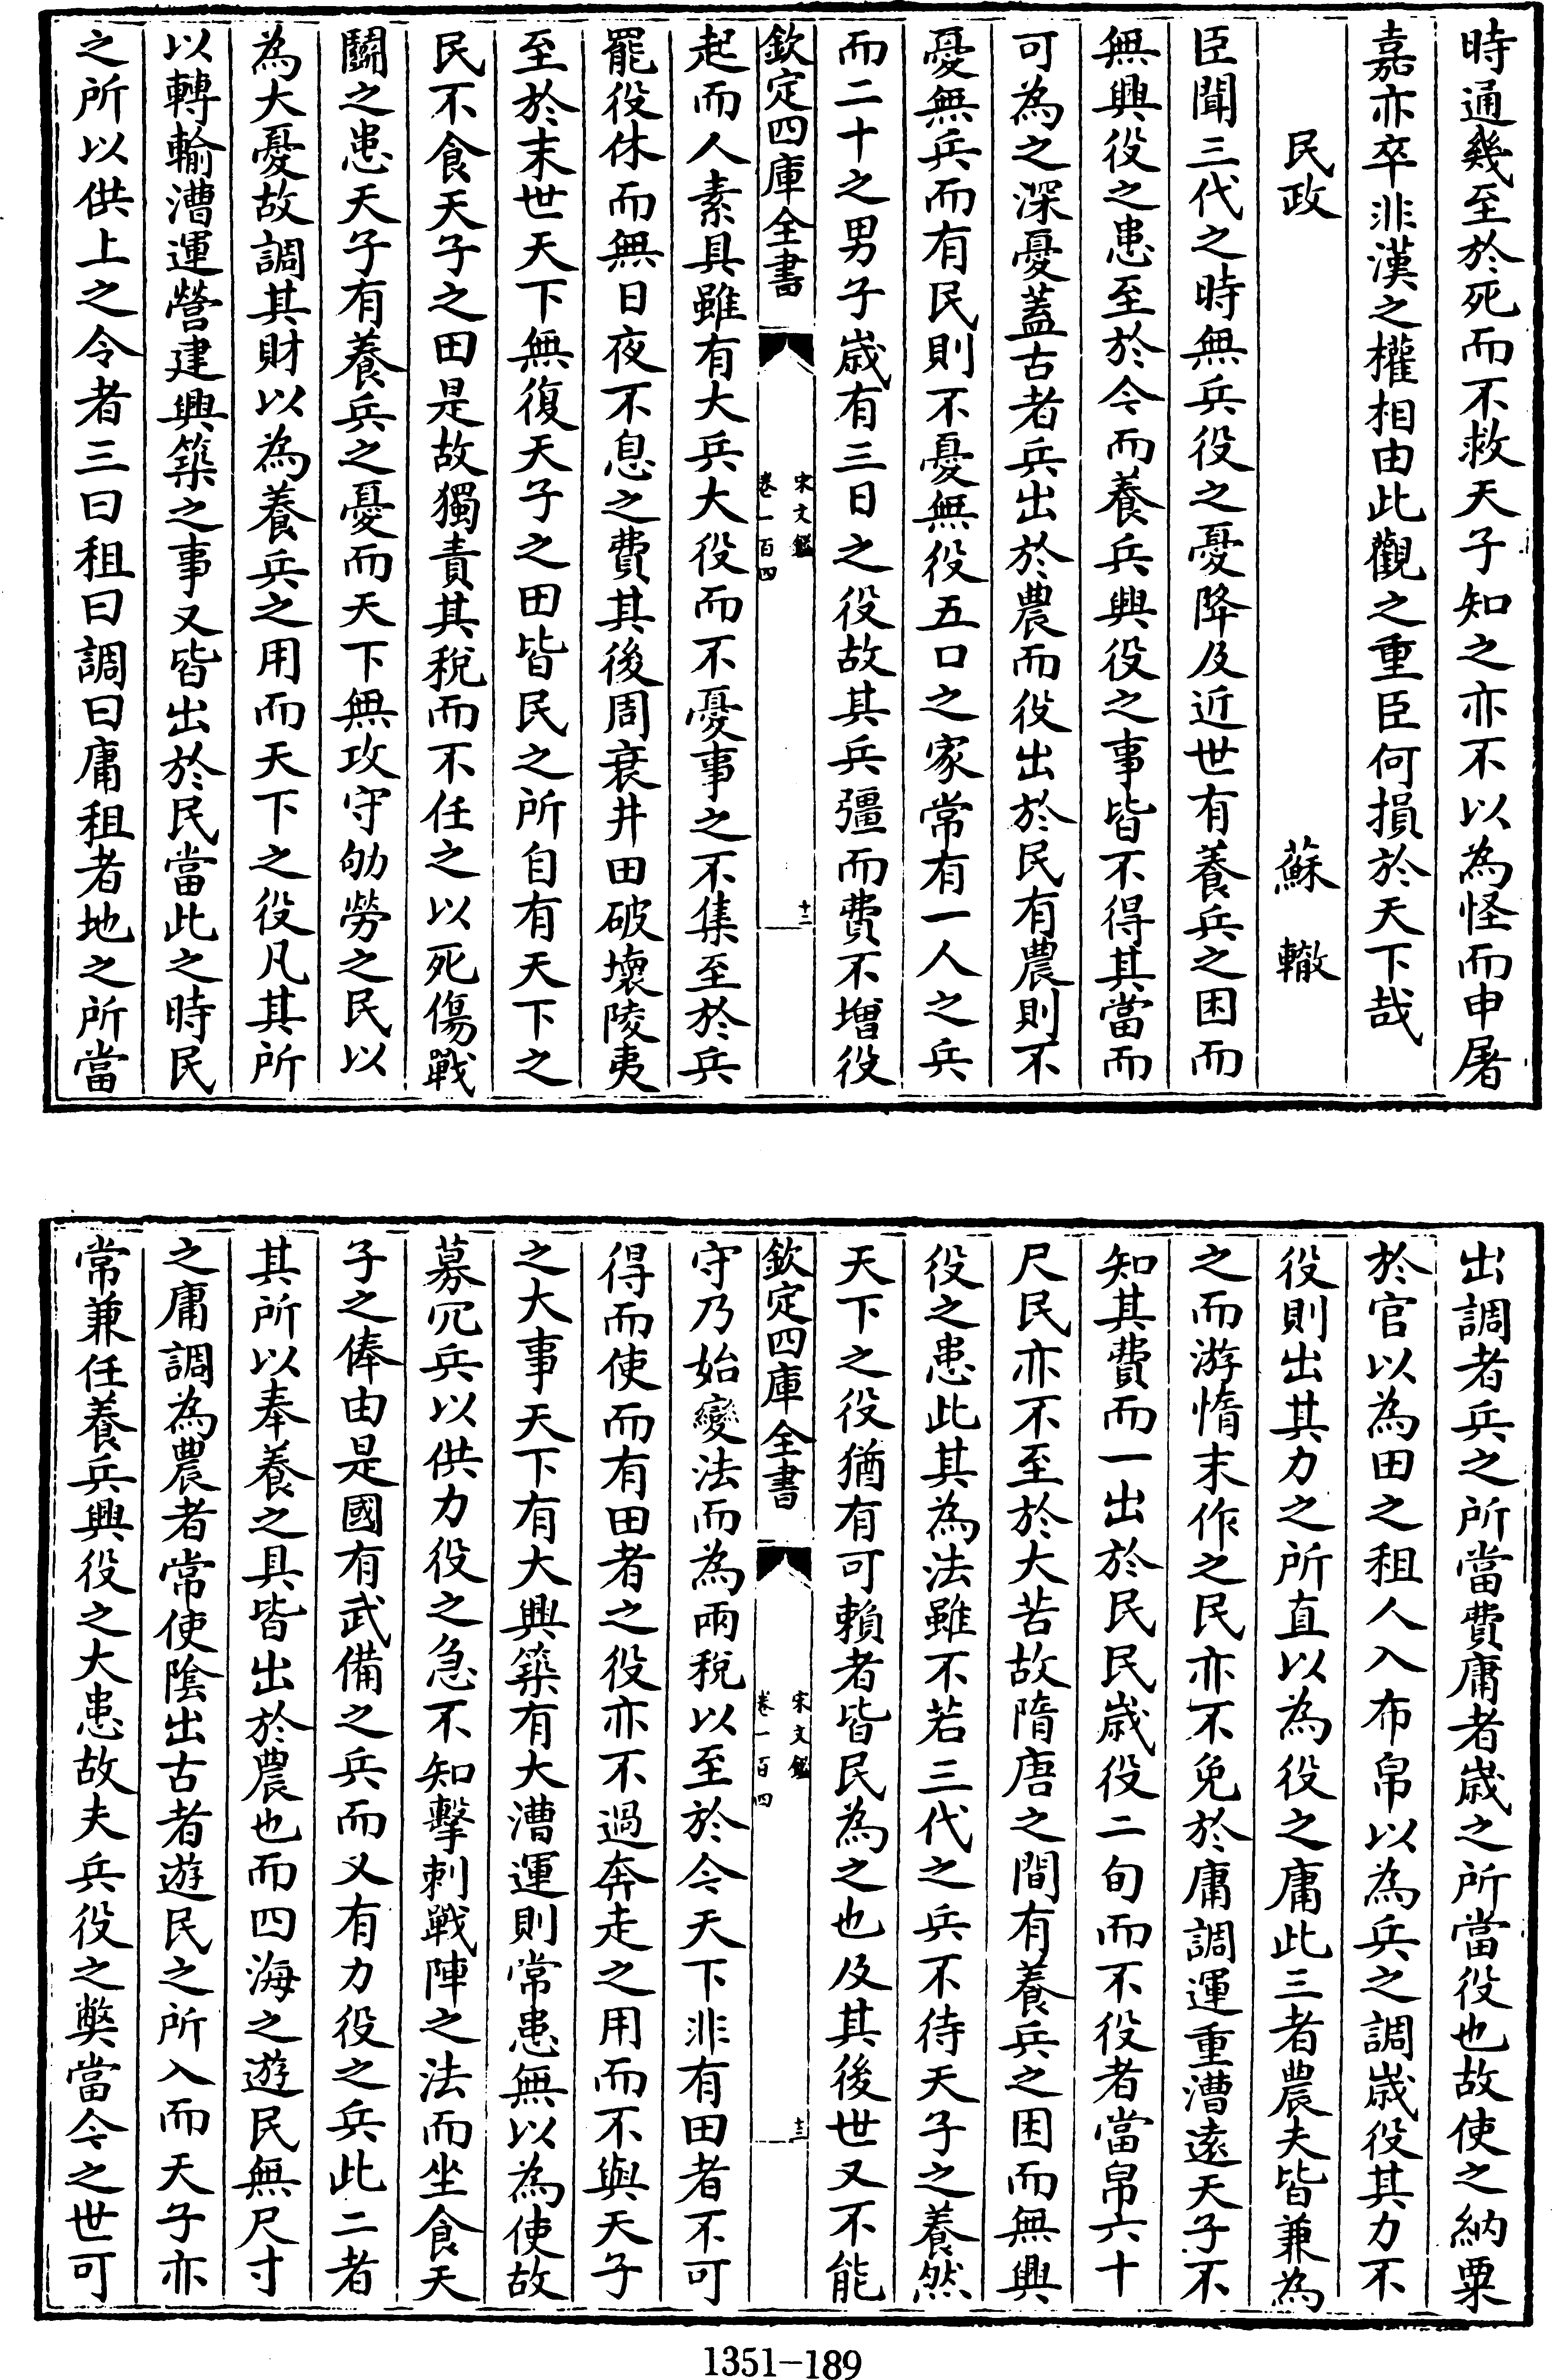 時通幾至於死而不救天子知之亦不以為怪而申屠
嘉亦卒非漢之權相由此觀之重臣何損於天下哉
民政　蘇　轍
臣聞三代之時無兵役之憂降及近世有養兵之困而
無興役之患至於今而養兵興役之事皆不得其當而
可為之深憂蓋古者兵出於農而役出於民有農則不
憂無兵而有民則不憂無役五口之家常有一人之兵
而二十之男子歲有三日之役故其兵彊而費不增役
欽定四庫全書
宋文鑑
卷一百四
十二
起而人素具雖有大兵大役而不憂事之不集至於兵
罷役休而無日夜不息之費其後周衰井田破壞陵夷
至於末世天下無復天子之田皆民之所自有天下之
民不食天子之田是故獨責其稅而不任之以死傷戰
鬬之患天子有養兵之憂而天下無攻守劬勞之民以
為大憂故調其財以為養兵之用而天下之役凡其所
以轉輸漕運營建興築之事又皆出於民當此之時民
之所以供上之令者三曰租曰調曰庸租者地之所當
出調者兵之所當費庸者歲之所當役也故使之納粟
於官以為田之租人入布帛以為兵之調歲役其力不
役則出其力之所直以為役之庸此三者農夫皆兼為
之而游惰末作之民亦不免於庸調運重漕遠天子不
知其費而一出於民民歲役二旬而不役者當帛六十
尺民亦不至於大苦故隋唐之間有養兵之困而無興
役之患此其為法雖不若三代之兵不待天子之養然
天下之役猶有可賴者皆民為之也及其後世又不能
欽定四庫全書
宋文鑑
卷一百四
十三
守乃始變法而為兩稅以至於今天下非有田者不可
得而使而有田者之役亦不過奔走之用而不與天子
之大事天下有大興築有大漕運則常患無以為使故
募冗兵以供力役之急不知擊刺戰陣之法而坐食天
子之俸由是國有武備之兵而又有力役之兵此二者
其所以奉養之具皆出於農也而四海之遊民無尺寸
之庸調為農者常使陰出古者遊民之所入而天子亦
常兼任養兵興役之大患故夫兵役之獘當今之世可
1351-189